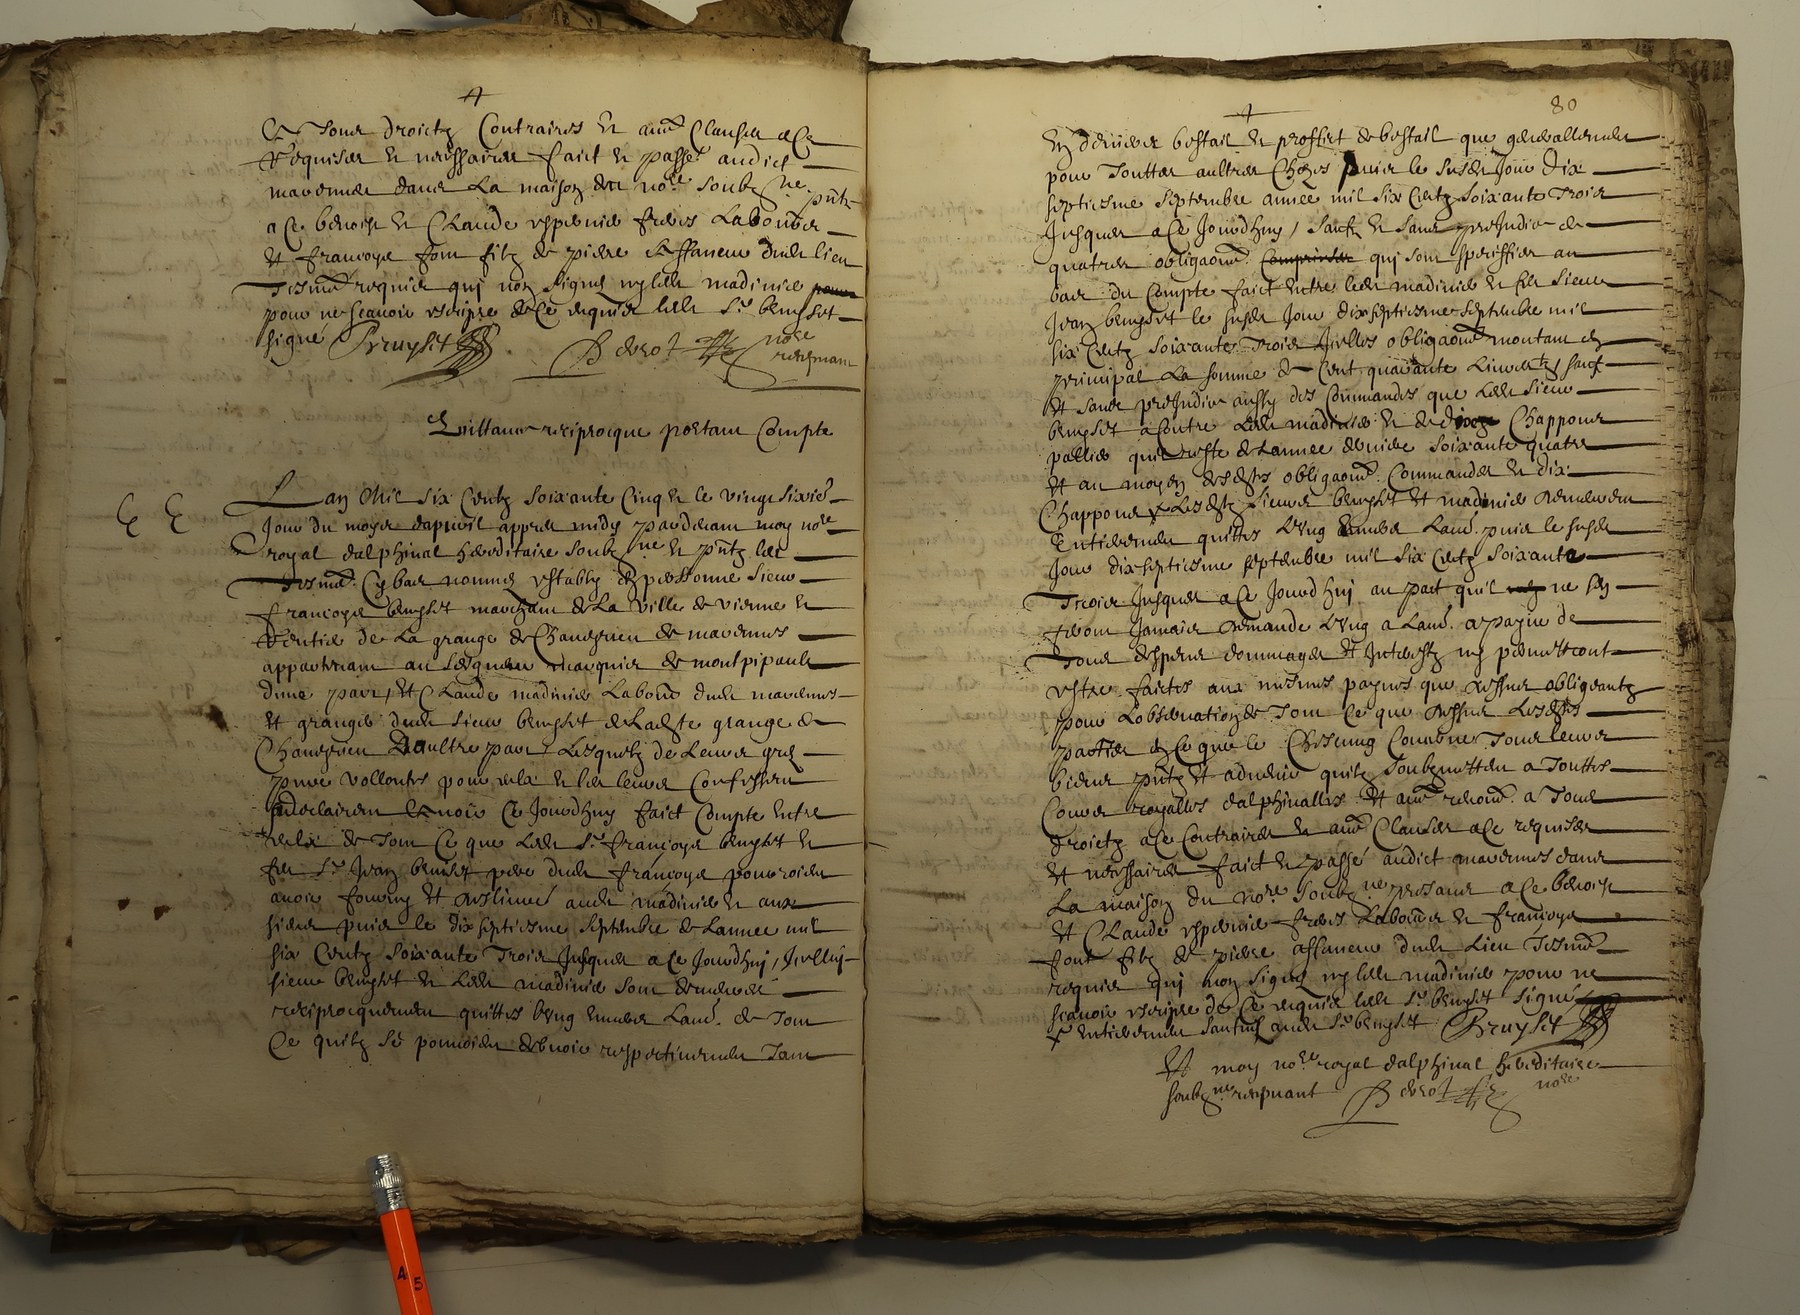 A tous droictz Contraires et au[tres] Clauses a Ce
Requises et necessaires faict et passé audict
marennes dans La maison de n[ot]re soubz né p[rese]ntz
a Ce benoist et Claude freres Laboureurs
et françoys fom filz de piere affaneur dud lieu
Tesm requis quj non signé ny led madinier
pour ne scavoir escripre de Ce requis led Sr bruyset
signé Bruyset Berot no.re recepvant
Quittance reciprocque portant Compte
L an Mil six Centz soixante Cinq et le vingt sixies
Jour du moys dapvril appres midy pardevant moy no.re
royal dalphinal hereditaire soubz né et p[rese]ntz les
Tesm Cy bas nommes estably en personne sieur
françoys bruyset marchant de La ville de vienne et
Rentier de La grange de Chanejrieu de marennes
appartenant au seigneur marquis de montpipault
dune part, et Claude madinier Labour dud marennes
et granger dud sieur bruyset de Ladte grange de
Chaneyrieu Daultre part Lesquelz de Leurs gre
pure vollontes pour eulx et les leurs Confessent
declairent avoir Ce Jourdhuy faict Compte entre
eulx de Tout Ce que Led Sr françoys bruyset et
feu Sr Jean bruyset pere dud françoys pouvoient
avoir fourny et deslivré aud madinier et aux
siens puis le dix septiesme septembre de Lannee mil
six Centz soixante Trois Jusques a Ce Jourdhuj, Jcelluy
sieur bruyset et Led madinier sont demeurés
reciprocquement quittes Lung envers Lau. de Tout
Ce quilz se pouvoient debvoir respectivement Tant
80
En deniers bestail et proffict de bestail que generallement
pour Touttes aultres Choses puis le susd Jour Dix
septiesme septembre annee mil six Centz soixante Trois
Jusques a Ce Jourdhuy, sauf et sans preJudice de
quatres obliga[ti]ons Comprinses quj sont speciffies au
bas du Compte faict entre led madinier et feu sieur
Jean bruyset le susd Jour dix septiesme septembre mil
six Centz soixante Trois Jcelles obliga[ti]ons montant en
principal La somme de Cent quarante Livres, sauf
et sans preJudice aussy des Commandes que Led sieur
bruyset a Contre Led madinier et de dix Chappons
pallies quil reste de Lannee derniere soixante quatre
et au moyen desdtes obliga[ti]ons Commandes et dix
Chappons Lesdts sieurs bruyset et madinier demeurent
Entierement quittes Lung envers Lau. puis le susd
Jour dix septiesme septembre mil six Centz soixante
Trois Jusques a Ce Jourdhuj au part quil ne sen
feront Jamais demande Lung a Lau. a payne de
Tous despens dommages et Jnterestz ny permettront
estre faictes aux mesmes paynes que dessus obligeantz
pour Lobservation de Tout Ce que dessus Lesdtes
parties en Ce que le Chescung Concerne Tous leurs
biens p[rese]ntz et advenir quilz soubzmettent a Touttes
Cours royalles dalphinalles et au renon. a Tous
droictz a Ce Contraires et au Clauses a Ce requises
et necessaires faict et passé audict marennes dans
La maison du No.re soubz né presantz a Ce benoist
et Claude freres Laboureurs et françoys
font filz de piere affaneur dud Lieu Tesm
requis quj non signé ny led madinier pour ne
scavoir escripre de Ce requis led Sr bruyset signé
Entierement sauf aud Sr bruyset Bruyset
Et moy no.re royal dalphinal hereditaire
soubz né recepvant Berot no.re